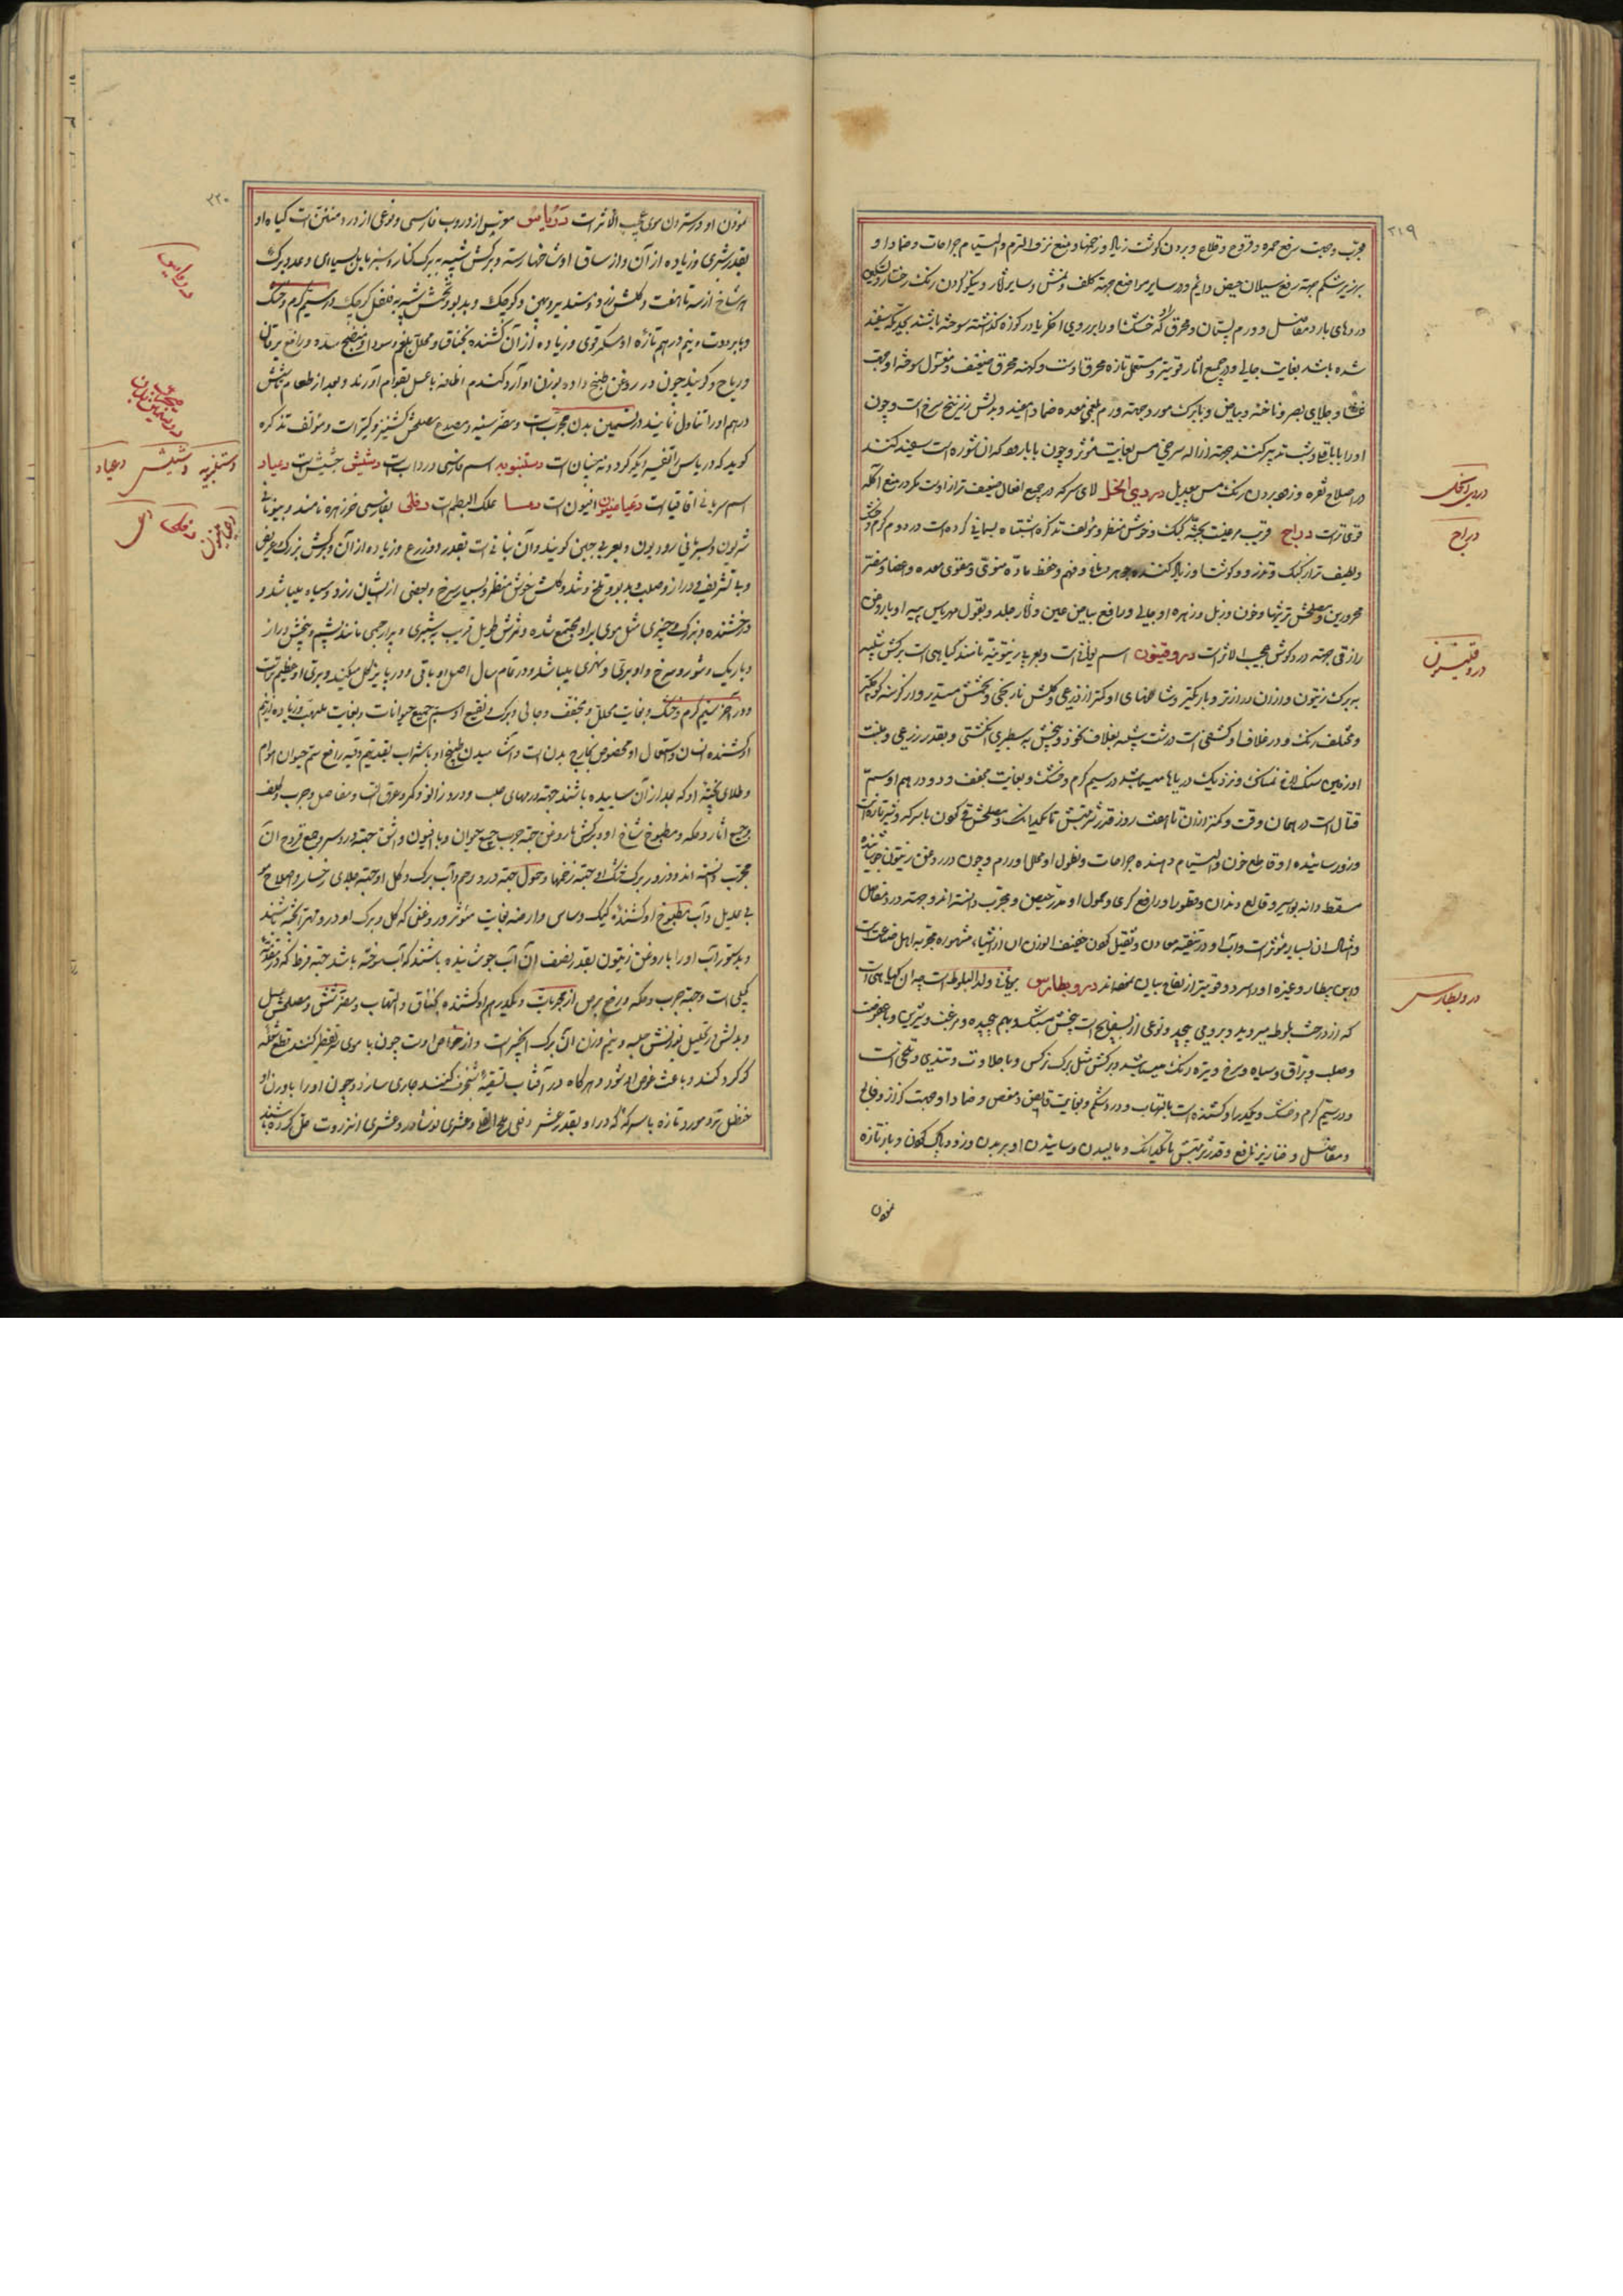 ۲۱۹
مجرب وجهت رفع حمره و قروح و قلاع و بردن گوشت زیاد و زخمها و منع نزف الدم و التیام جراحات و ضماد او
بر زیر شکم جهة رفع سیلان حیض دایم و در سایر مواضع جهة کلف و نمش و سایر آثار و نیکو کردن رنک رخسار و تسکین
دردهای بارد مفاصل و ورم پستان و محرق او که خشک او را بر روی اخکر یا در کوزه گذاشته سوخته باشند بحدیکه سفید
شده باشد بغایت جالی و در جمیع آثار قویتر و مستعمل تازه محرق اوست و کهنه محرق ضعیف و مغسول سوخته او جهت
غشاوه و جلای بصر و ناخنه و بیاض و با برک مورد جهة ورم بلغمی معده ضماداً مفید و بدلش زرنیخ سرخ است و چون
او را با باقلا و شب تدبیر کنند جهة ازاله سرخی مس بغایت مؤثر و چون با بارهه که ان شوره است سفید کنند
در اصلاح نقره و زهو بردن رنک مس بیعدیل دردی الخل لای سرکه در جمیع افعال ضعیف تر از اوست مکر در منع آکله
قوی تر است دراج قریب بر هیئت بجثه کبک و خوش منظر و مؤلف تذکره اشتباه بسمانی کرده است در دوم گرم و خشک
و لطیف تر از کبک و تذرو و گوشت او زیاد کننده جوهر دماغ و فهم و حفظ ماده منوی و مقوی معده و اعضا و مضر
محرورین و مصلحش ترشیها و خون و زبل و زهره او جالی و رافع بیاض عین و آثار جلد و بقول مهراس پیه او با روغن
رازقی جهة درد گوش عجیب الاثر است دروقنیون اسم یونانی است و بعربی زیتونیه نامند گیاهی است برکش شبیه
به برک زیتون و از ان درازتر و باریکتر و شاخهای او کمتر از ذرعی و گلش نارنجی و تخمش مستدیر و از کرسنه کوچکتر
و مختلف رنک و در غلاف او کشفی است درشت شبیه بغلاف نخود و بیخش به سطبری انگشتی و بقدر ذرعی و منبت
او زمین سنک لاخ نمناک و نزدیک دریاها میباشد در سیم گرم و خشک و بغایت مجفف و دو درهم او سم
قتال است در همان وقت و کمتر از ان تا هفت روز قدر شربتش تا یکدانک و مصلحش قی کردن با سرکه و شیر تازه است
و زرور سائیده او قاطع خون و التیام دهنده جراحات و نطول او محلل اورام و چون در روغن زیتون جوشانیده
مسقط دانه بواسیر و قالع دندان و قطور او رافع کری و حمول او مدر حیض و مجرب دانسته اند و جهة درد مفاصل
و امثال ان بسیار مؤثر است و اب او در تنقیه معادن و ثقیل کردن خفیف الوزن ان از اشیاء مشهوره مجربه اهل صناعت است
و ابن بیطار و غیره او را سرد و قویتر از لفاح بیان نموده اند دروبطارس یونانی ولد البلوط است چه ان گیاهی است
که از درخت بلوط میروید و برو می پیچد و نوعی از بسفایج است بیخش مشبک و بهم پیچیده و مزغب و شیرین و با عفوصت
و صلب و براق و سیاه و سرخ و تیره رنک میباشد و برکش مثل برک نرکس و با حلاوت و تندی و تلخی است
و در سیم گرم و خشک و یکدرم او کشنده است بالتهاب و درد شکم و بغایت قابض و معفن و ضماد او جهت کزاز و فالج
و مفاصل و خنازیر نافع و قدر شربتش تا یکدانک و مالیدن و سائیدن او بر بدن و زدودن پاک کردن و باز تازه
نمودن
دردی الخل
دراج
دروقنیون
دروبطارس
۲۲۰
نمودن او در ستردن موی عجیب الاثر است دریاس معرب از دروب فارسی و نوعی از درد منتن است گیاه او
بقدر شبری و زیاده از آن و از ساق او شاخها رسته و برکش شبیه ببرک کنار و سبز مایل بسیاهی و عدد برک
هر شاخ از سه تا هفت و گلش زرد و مستدیر و پهن و کوچک و بدبو و تخمش شبیه بفلفل کوچک در سیم گرم و خشک
و با رطوبت و نیم درهم تازه او مسکر قوی و زیاده از آن کشنده بخناق و محلل بلغم و سودا و منضج سده و رافع یرقان
و ریاح و گویند چون در روغن طبخ داده بوزن او آرد گندم اضافه با عسل بقوام آورند و بعد از طعام شش
درهم او را تناول نمایند در تسمین بدن مجرب است و مضر سینه و مصدع مصلحش کشنیز و کتیرا است و مؤلف تذکره
گوید که دریاس القسیه ابکر کردونه میان است دستنبویه اسم فارسی درداب است دشیش جشیش است دعیاد
اسم سریانی اقاقیا است دعیامیذیون افیون است دمسا علک البطم است دفلی بفارسی خرزهره نامند و بیونانی
نریون و بسریانی رودیون و بعربی حبین گویند و آن نباتی است بقدر دو ذرع و زیاده از آن و برکش بزرک و عریض
و بی تشریف و دراز و صلب و بدبو و تلخ و تند و گلش خوش منظر و بسیار سرخ و بعضی از ایشان زرد و سیاه میباشد و
درخشنده و بزرک و چیزی مثل موی بر او مجتمع شده و ثمرش طویل قریب بشبری و پر از جسمی مانند پشم و بیخش دراز
و باریک و شور و سرخ و او بری و نهری میباشد و در تمام سال اصل او باقی و در پاییز گل میکند و بری او عظیم تر است
و در آخر سیم گرم و خشک و بغایت محلل و مجفف و جالی و برک و نقیع او سم جمیع حیوانات و بغایت ملهب و زیاده از نیم
او کشنده انسان و استعمال او مخصوص بخارج بدن است و آشامیدن طبیخ او با شراب بقدر نیم وقیه رافع سم حیوان هوام
و طلای پخته او که بعد از آن سائیده باشند جهة ورمهای صلب و درد زانو و کمر و عرق النسا و مفاصل و جرب و کلف
و جمیع آثار و حکه و مطبوخ شاخ او و برکش با روغن جهة جرب جمیع حیوان و با افیون و اشق جهة درد سر و جمع قروح آن
مجرب دانسته اند و ذرور برک خشک او جهة زخمها و حمول جهة درد رحم و آب برک و گل او جهة جلای رخسار و اصلاح مو
بی عدیل و آب مطبوخ او کشنده کیک و ساس و ارضه بغایت مؤثر و روغنی که گل و برک او در و مهرا پخته باشند
و بدستور آب او را با روغن زیتون بقدر نصف آن آب جوشانیده باشند که آب سوخته باشد جهة
کلی است و جهة جرب و حکه و رفع برص از مجربات و یکدرهم او کشنده بخناق و التهاب و مضر شش و مصلحش عسل
و بدلش در تحلیل بوزنش حلبه و نیم وزن آن برک انجیر است و از خواص اوست چون با موی سر تقطیر کنند
گوگرد کند و باعث غوص او شود و هرگاه در آفتاب تسقیه کنند جاری سازد و چون او را با وزن او
حنظل تر و مورد تازه با سرکه که در او بقدر عشر نمک القلی و عشری نوشادر و عشری انزروت حل کرده باشند
دریاس
دستنبویه دشیش دعیاد
دفلی